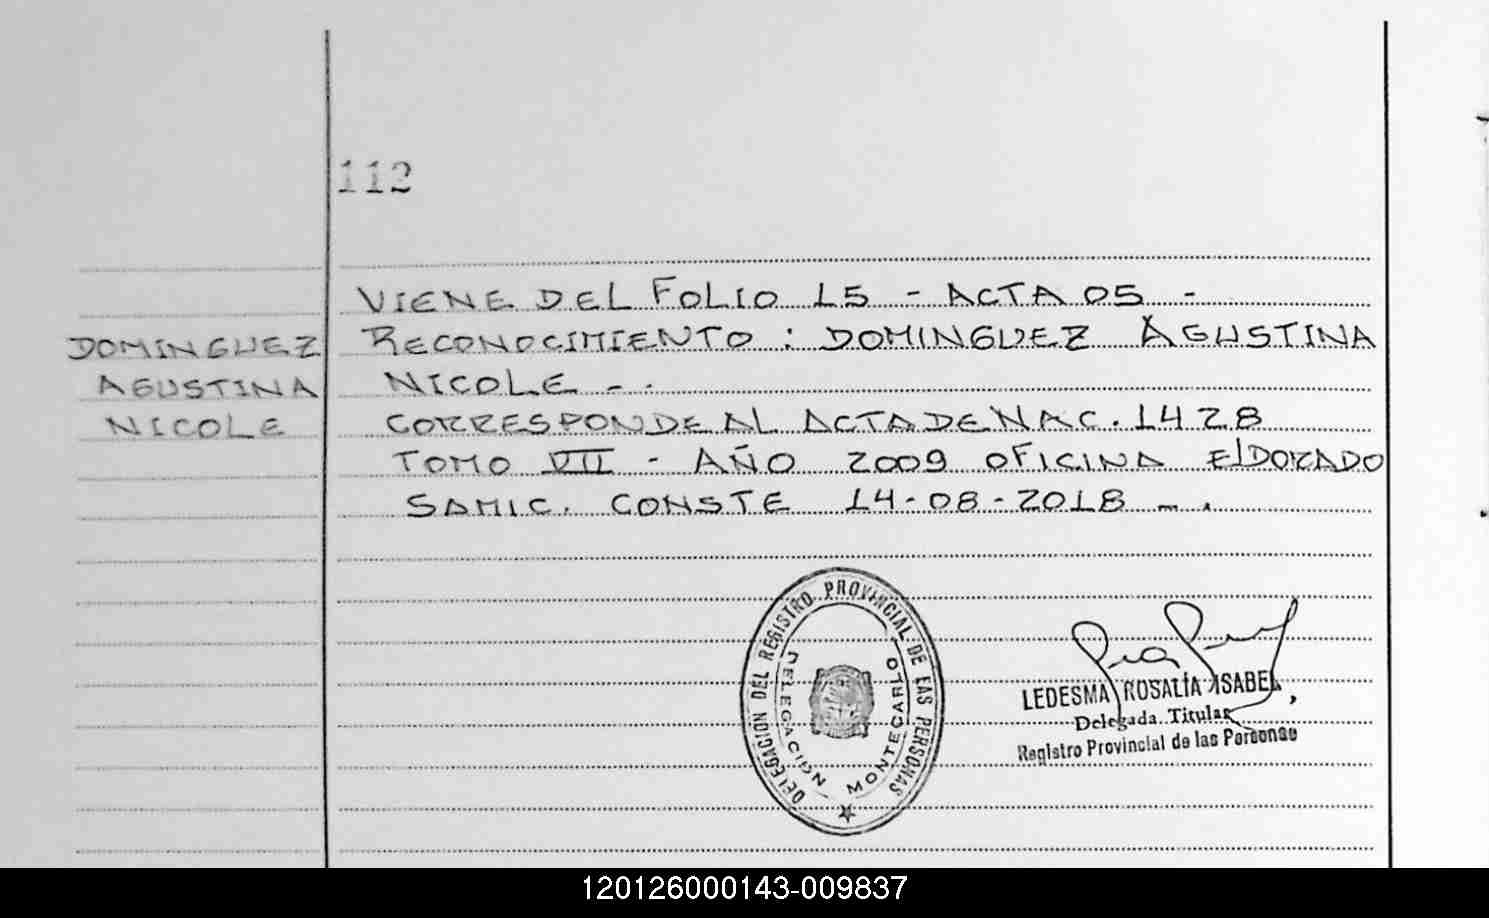 112
VIENE DEL FOLIO 15 - ACTA 05 -
DOMINGUEZ
AGUSTINA
NICOLE
RECONOCIMIENTO : DOMINGUEZ AGUSTINA
NICOLE - .
CORRESPONDE AL ACTA DE NAC. 1428
TOMO VII - AÑO 2009 OFICINA ELDORADO
SAMIC. CONSTE 14-08-2018 - .
DELEGACION DEL REGISTRO PROVINCIAL DE LAS PERSONAS
DELEGACION MONTECARLO
LEDESMA ROSALÍA ISABEL
Delegada Titular
Registro Provincial de las Personas
120126000143-009837